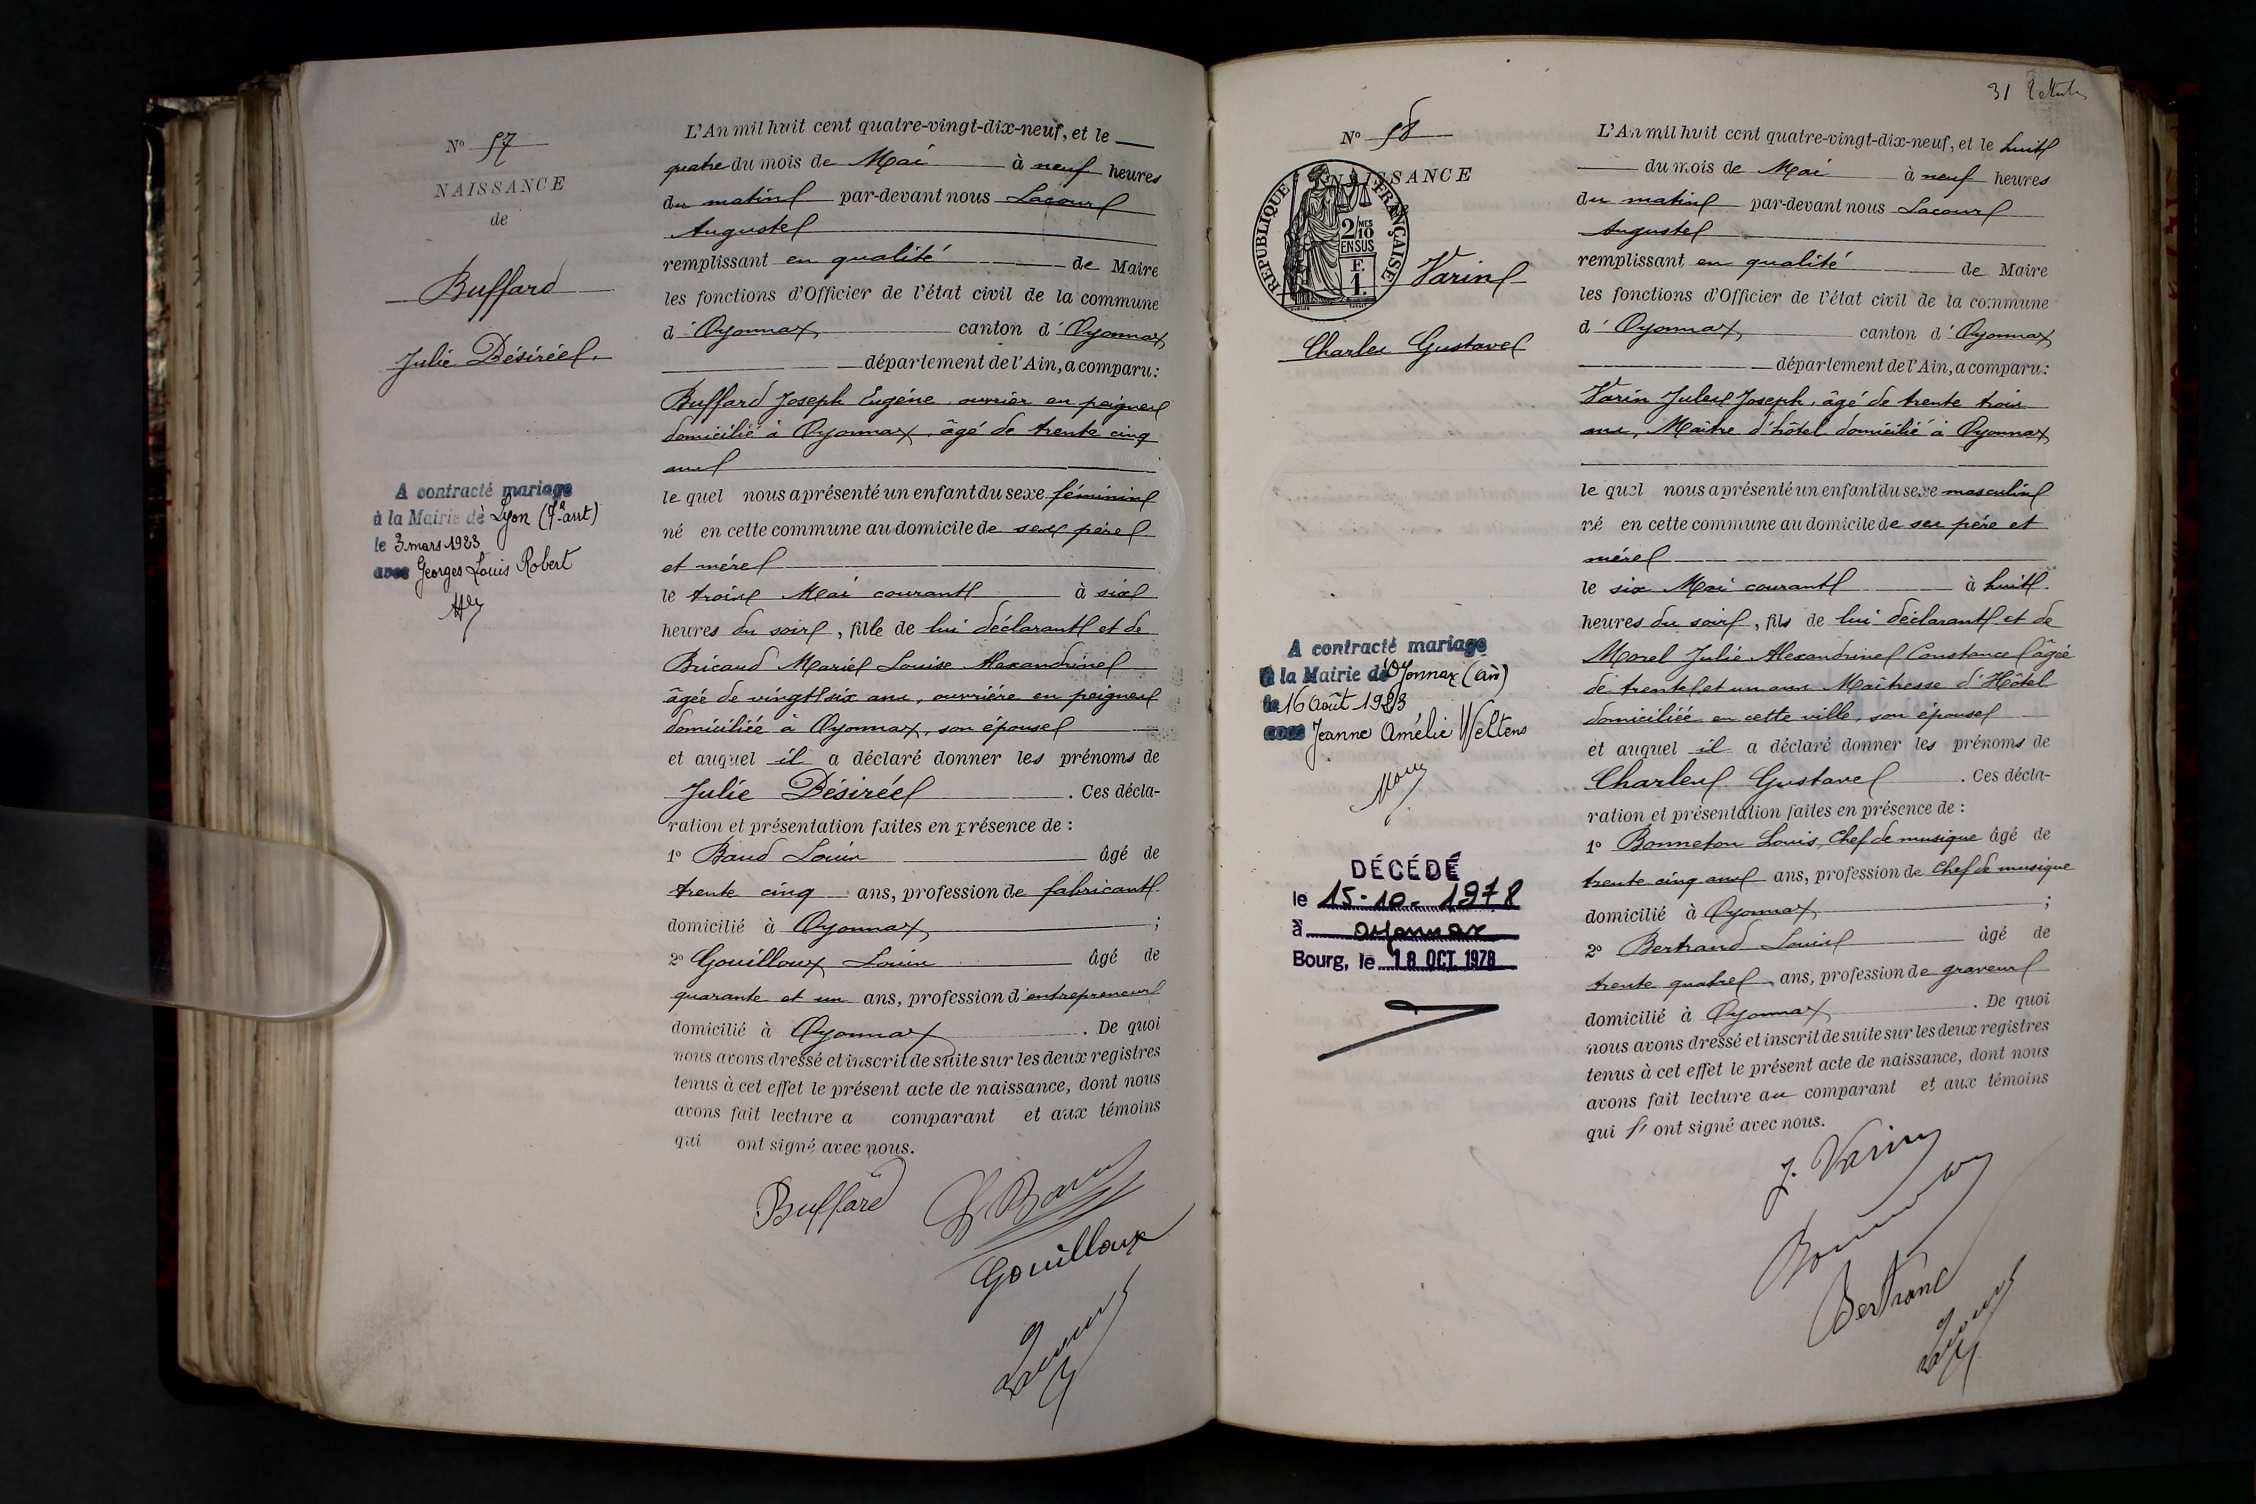 Nº 57
NAISSANCE
de
Buffard
Julie Désirée
A contracté mariage
à la Mairie de Lyon (7e arrt)
le 3 mars 1923
avec Georges Louis Robert
L'An mil huit cent quatre-vingt-dix-neuf, et le
quatre du mois de Mai à neuf heures
du matin par-devant nous Lacour
Auguste
remplissant en qualité de Maire
les fonctions d'Officier de l'état civil de la commune
d'Oyonnax canton d'Oyonnax
département de l'Ain, a comparu:
Buffard Joseph Eugène, ouvrier en peignes
domicilié à Oyonnax, âgé de trente cinq
ans
le quel nous a présenté un enfant du sexe féminin
né en cette commune au domicile de ses père
et mère
le trois Mai courant à six
heures du soir, fille de lui déclarant et de
Bricaud Marie Louise Alexandrine
âgée de vingt six ans, ouvrière en peignes
domiciliée à Oyonnax, son épouse
et auquel il a déclaré donner les prénoms de
Julie Désirée. Ces décla-
ration et présentation faites en présence de :
1º Baud Louis âgé de
trente cinq ans, profession de fabricant
domicilié à Oyonnax ;
2º Gouilloux Louis âgé de
quarante et un ans, profession d'entrepreneur
domicilié à Oyonnax. De quoi
nous avons dressé et inscrit de suite sur les deux registres
tenus à cet effet le présent acte de naissance, dont nous
avons fait lecture a comparant et aux témoins
qui ont signé avec nous.
Buffard
L Baud
Gouilloux
Lacour
31
Nº 58
NAISSANCE
RÉPUBLIQUE FRANÇAISE
2/10 MES
EN SUS
F.
1.
Varin
Charles Gustave
A contracté mariage
à la Mairie de Oyonnax (Ain)
le 16 Août 1923
avec Jeanne Amélie Weltens
DÉCÉDÉ
le 15-10-1978
à oyonnax
Bourg, le 18 OCT. 1978
L'An mil huit cent quatre-vingt-dix-neuf, et le huit
du mois de Mai à neuf heures
du matin par-devant nous Lacour
Auguste
remplissant en qualité de Maire
les fonctions d'Officier de l'état civil de la commune
d'Oyonnax canton d'Oyonnax
département de l'Ain, a comparu:
Varin Jules Joseph, âgé de trente trois
ans, Maître d'hôtel domicilié à Oyonnax
le quel nous a présenté un enfant du sexe masculin
né en cette commune au domicile de ses père et
mère
le six Mai courant à huit
heures du soir, fils de lui déclarant et de
Morel Julie Alexandrine Constance âgée
de trente et un ans Maîtresse d'Hôtel
domiciliée en cette ville, son épouse
et auquel il a déclaré donner les prénoms de
Charles Gustave. Ces décla-
ration et présentation faites en présence de :
1º Bonneton Louis, Chef de musique âgé de
trente cinq ans ans, profession de Chef de musique
domicilié à Oyonnax ;
2º Bertrand Louis âgé de
trente quatre ans, profession de graveur
domicilié à Oyonnax. De quoi
nous avons dressé et inscrit de suite sur les deux registres
tenus à cet effet le présent acte de naissance, dont nous
avons fait lecture au comparant et aux témoins
qui ont signé avec nous.
J. Varin
Bonneton
Bertrand
Lacour